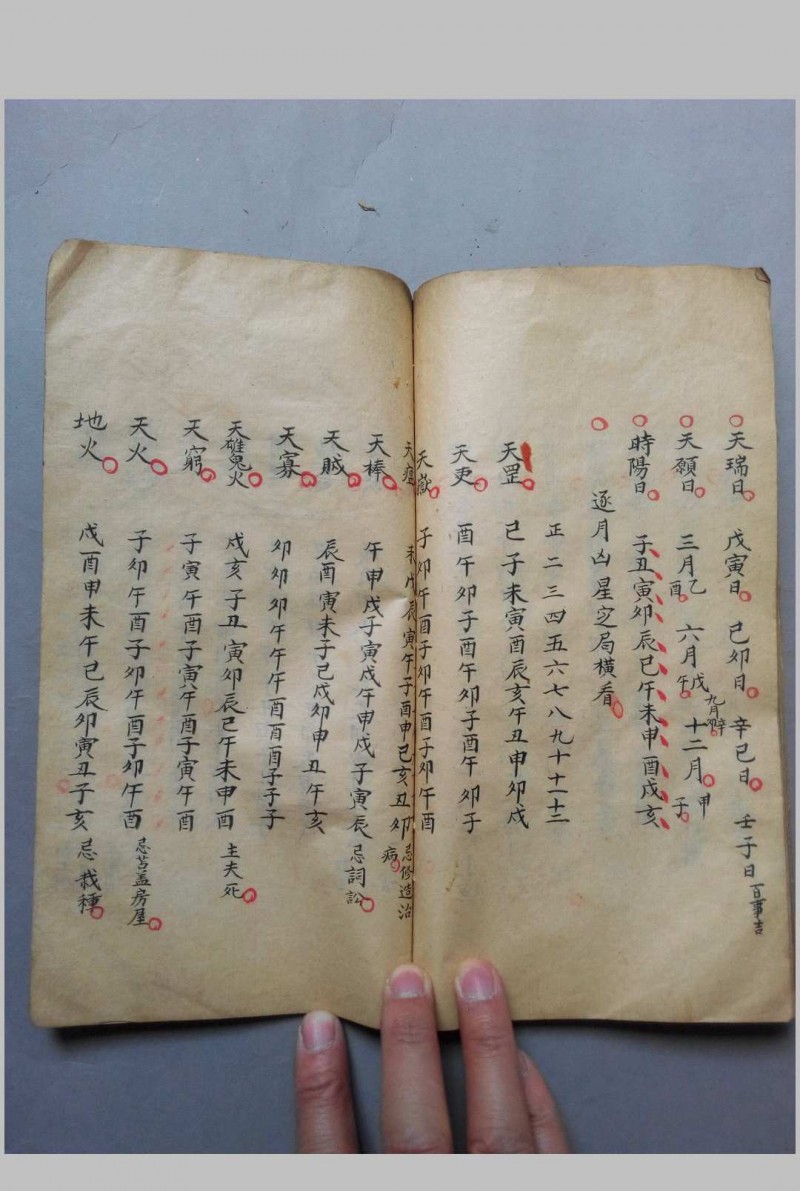 天瑞日 戊寅日 己卯日 辛巳日 壬子日 百事吉
天願日 三月乙酉 六月戊午 九月辛卯 十二月甲子
時陽日 子丑寅卯辰巳午未申酉戌亥
逐月凶星定局橫看
正二三四五六七八九十十一十二
天罡 巳子未寅酉辰亥午丑申卯戌
天吏 酉午卯子酉午卯子酉午卯子
天獄 子卯午酉子卯午酉子卯午酉
天瘟 未戌辰寅午子酉申巳亥丑卯 忌修造治病
天棒 午申戌子寅辰午申戌子寅辰 忌詞訟
天賊 辰酉寅未子巳戌卯申丑午亥
天寡 卯卯卯午午午酉酉酉子子子
天雄鬼火 戌亥子丑寅卯辰巳午未申酉 主夫死
天窮 子寅午酉子寅午酉子寅午酉
天火 子卯午酉子卯午酉子卯午酉 忌苫盖房屋
地火 戌酉申未午巳辰卯寅丑子亥 忌栽種